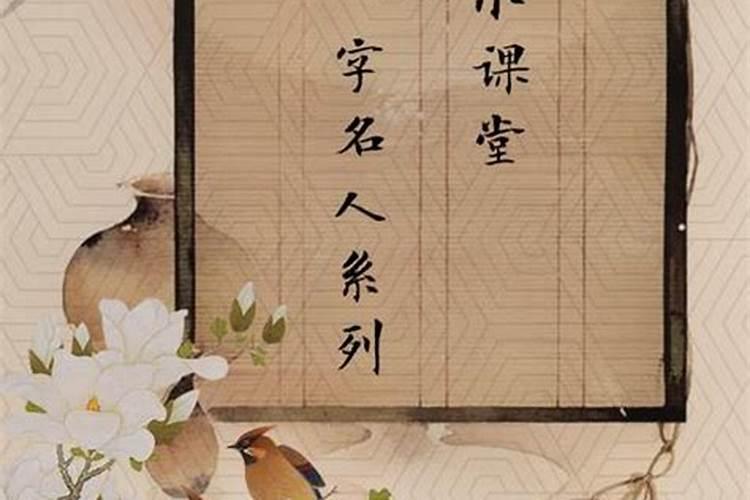 课堂
字名人系列